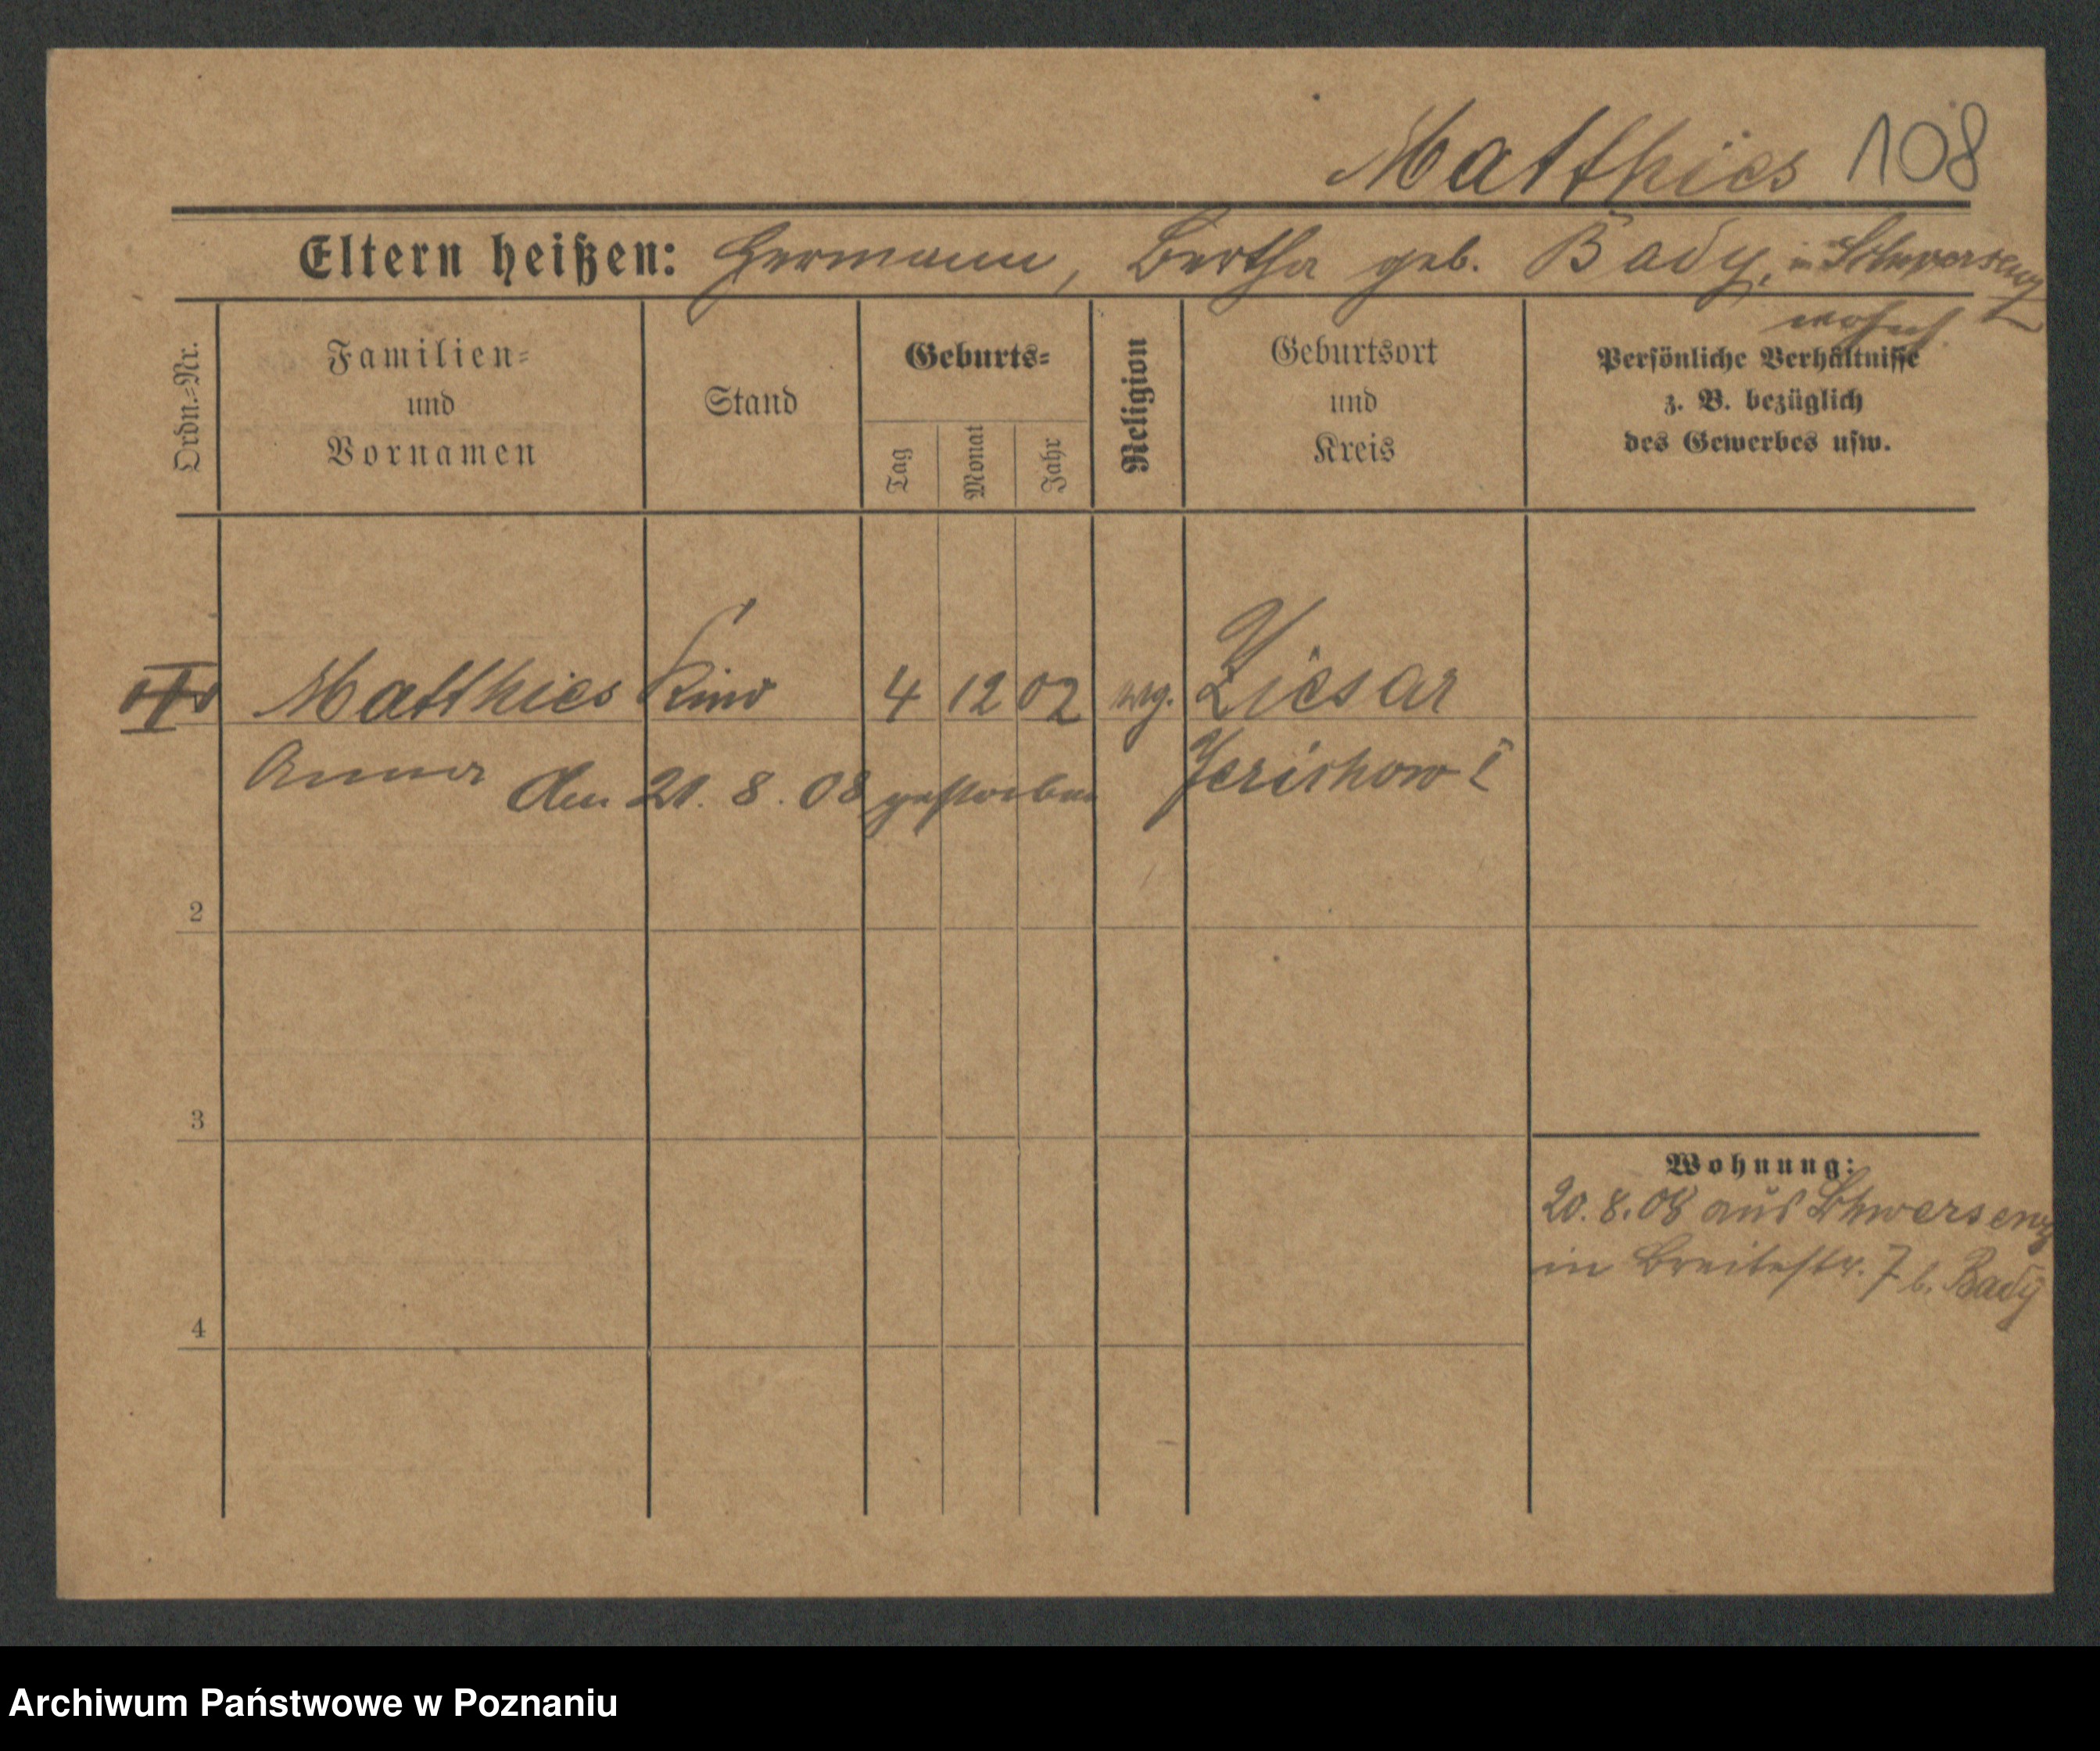 Matthies 108
Eltern heißen: Hermann, Bertha geb. Bady, in Schwersenz
wohnh.
Ordn.-Nr.
Familien-
und
Vornamen
Stand
Geburts-
Tag
Monat
Jahr
Religion
Geburtsort
und
Kreis
Persönliche Verhältnisse
z. B. bezüglich
des Gewerbes usw.
Matthies Kind 4 12 02 evg. Ziesar
Anna den 21. 8. 08 gestorben Jerichow I
2
3
4
Wohnung:
20. 8. 08 aus Schwersenz
in Breitestr. 7 b. Bady
Archiwum Państwowe w Poznaniu